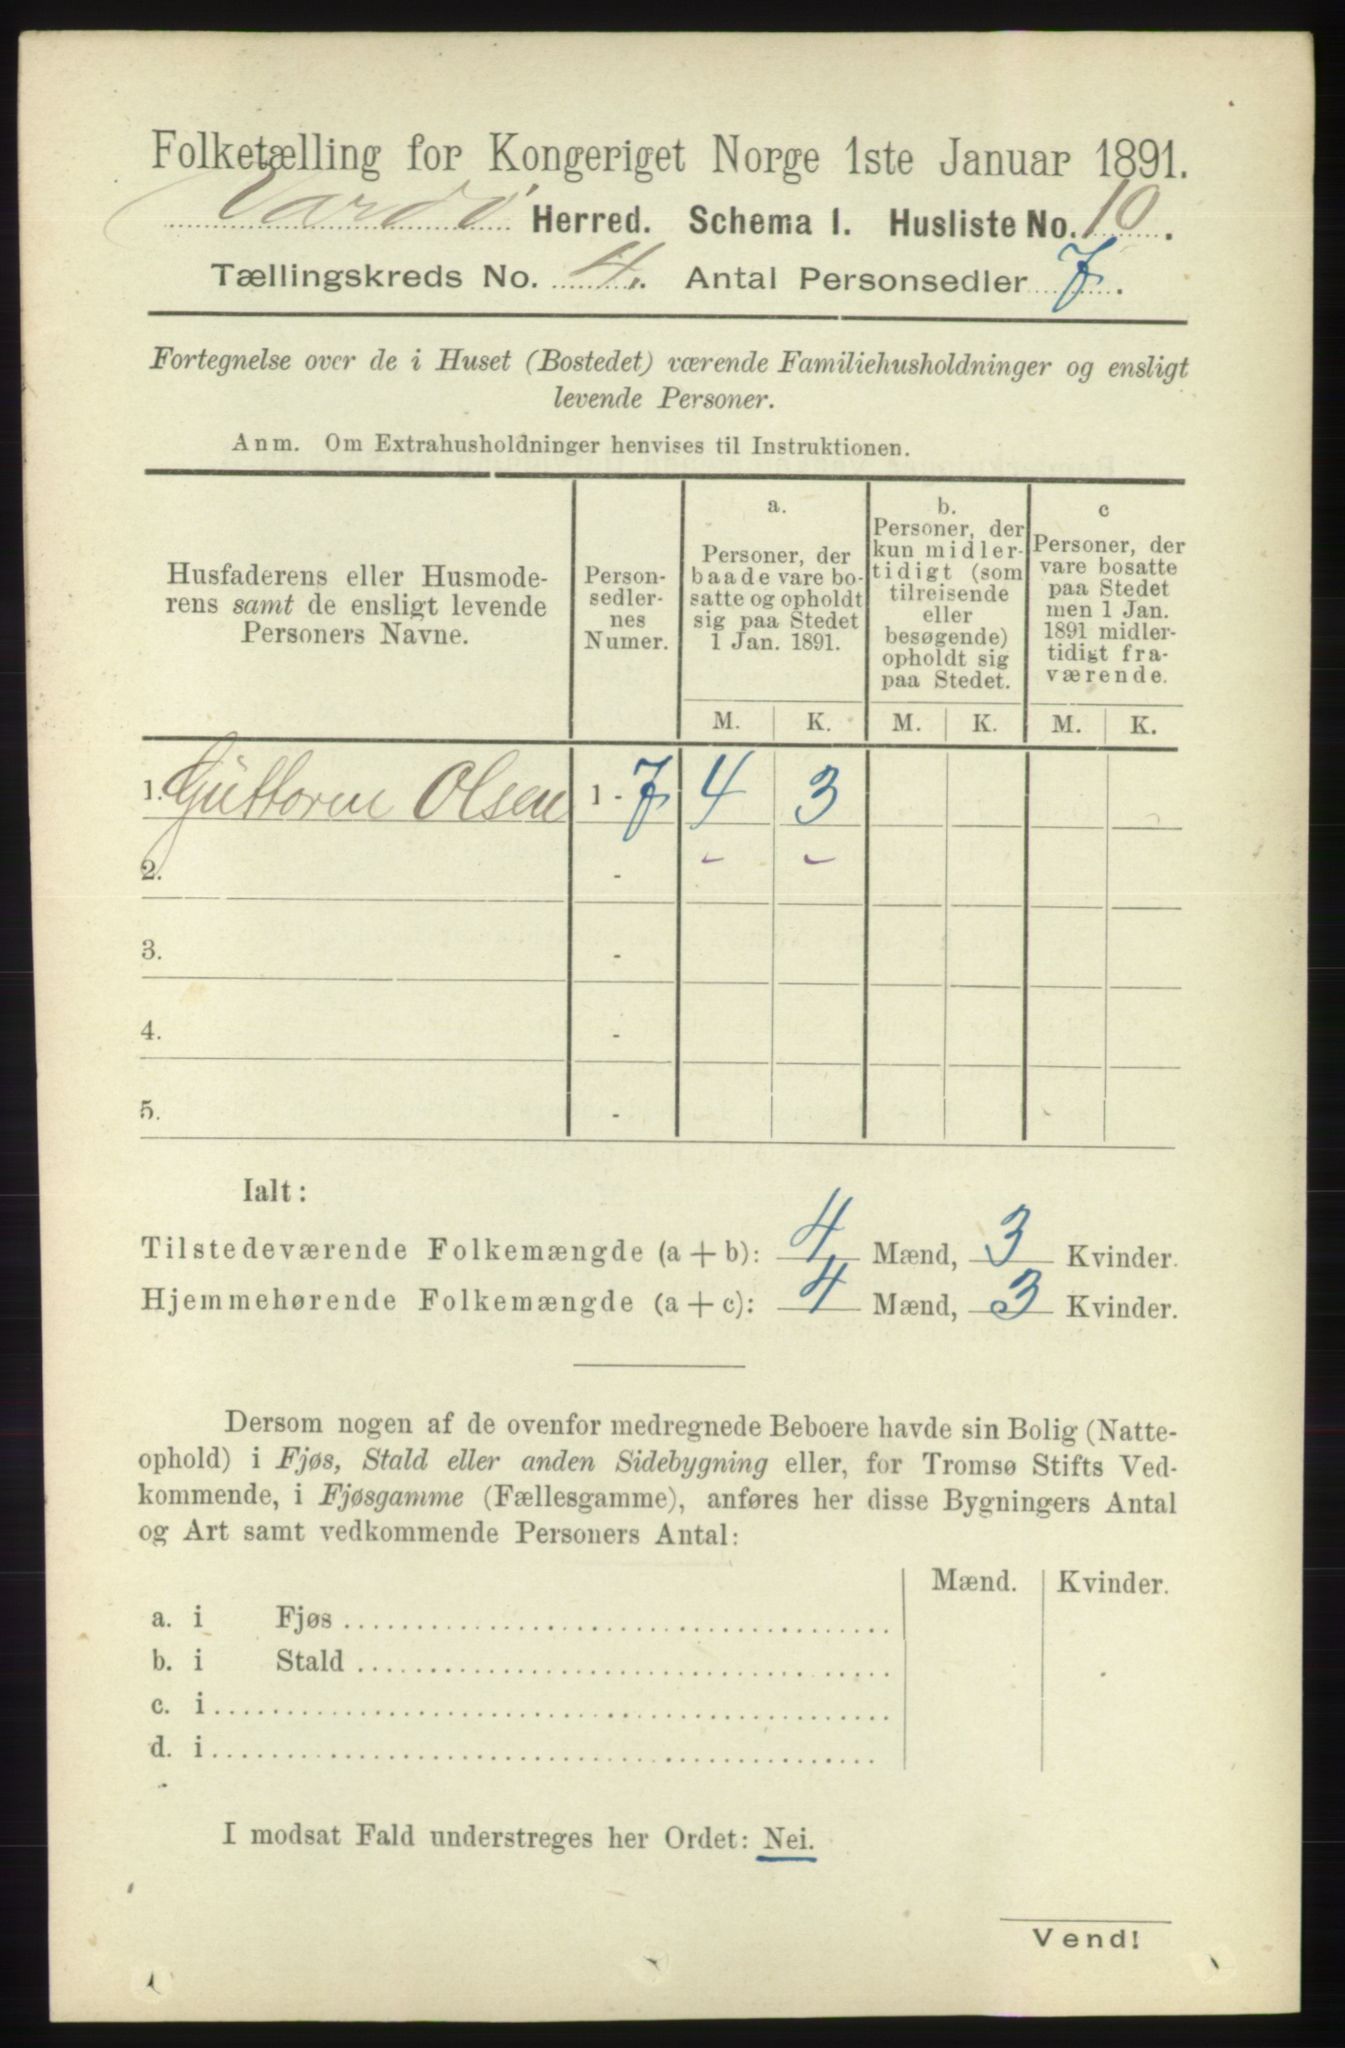 Folketælling for Kongeriget Norge 1ste Januar 1891.
Vardø Herred. Schema I. Husliste No. 10.
Tællingskreds No. 4. Antal Personsedler 7.
Fortegnelse over de i Huset (Bostedet) værende Familiehusholdninger og ensligt
levende Personer.
Anm. Om Extrahusholdninger henvises til Instruktionen.
Husfaderens eller Husmode-
rens samt de ensligt levende
Personers Navne.
Person-
sedler-
nes
Numer.
a.
Personer, der
baade vare bo-
satte og opholdt
sig paa Stedet
1 Jan. 1891.
b.
Personer, der
kun midler-
tidigt (som
tilreisende
eller
besøgende)
opholdt sig
paa Stedet.
c
Personer, der
vare bosatte
paa Stedet
men 1 Jan.
1891 midler-
tidigt fra-
værende.
M. K. M. K. M. K.
1. Guttorm Olsen 1 - 7 4 3
2. - - -
3. -
4. -
5. -
Ialt:
Tilstedeværende Folkemængde (a + b): 4 Mænd, 3 Kvinder.
Hjemmehørende Folkemængde (a + c): 4 Mænd, 3 Kvinder.
Dersom nogen af de ovenfor medregnede Beboere havde sin Bolig (Natte-
ophold) i Fjøs, Stald eller anden Sidebygning eller, for Tromsø Stifts Ved-
kommende, i Fjøsgamme (Fællesgamme), anføres her disse Bygningers Antal
og Art samt vedkommende Personers Antal:
Mænd. Kvinder.
a. i Fjøs
b. i Stald
c. i
d. i
I modsat Fald understreges her Ordet: Nei.
Vend!